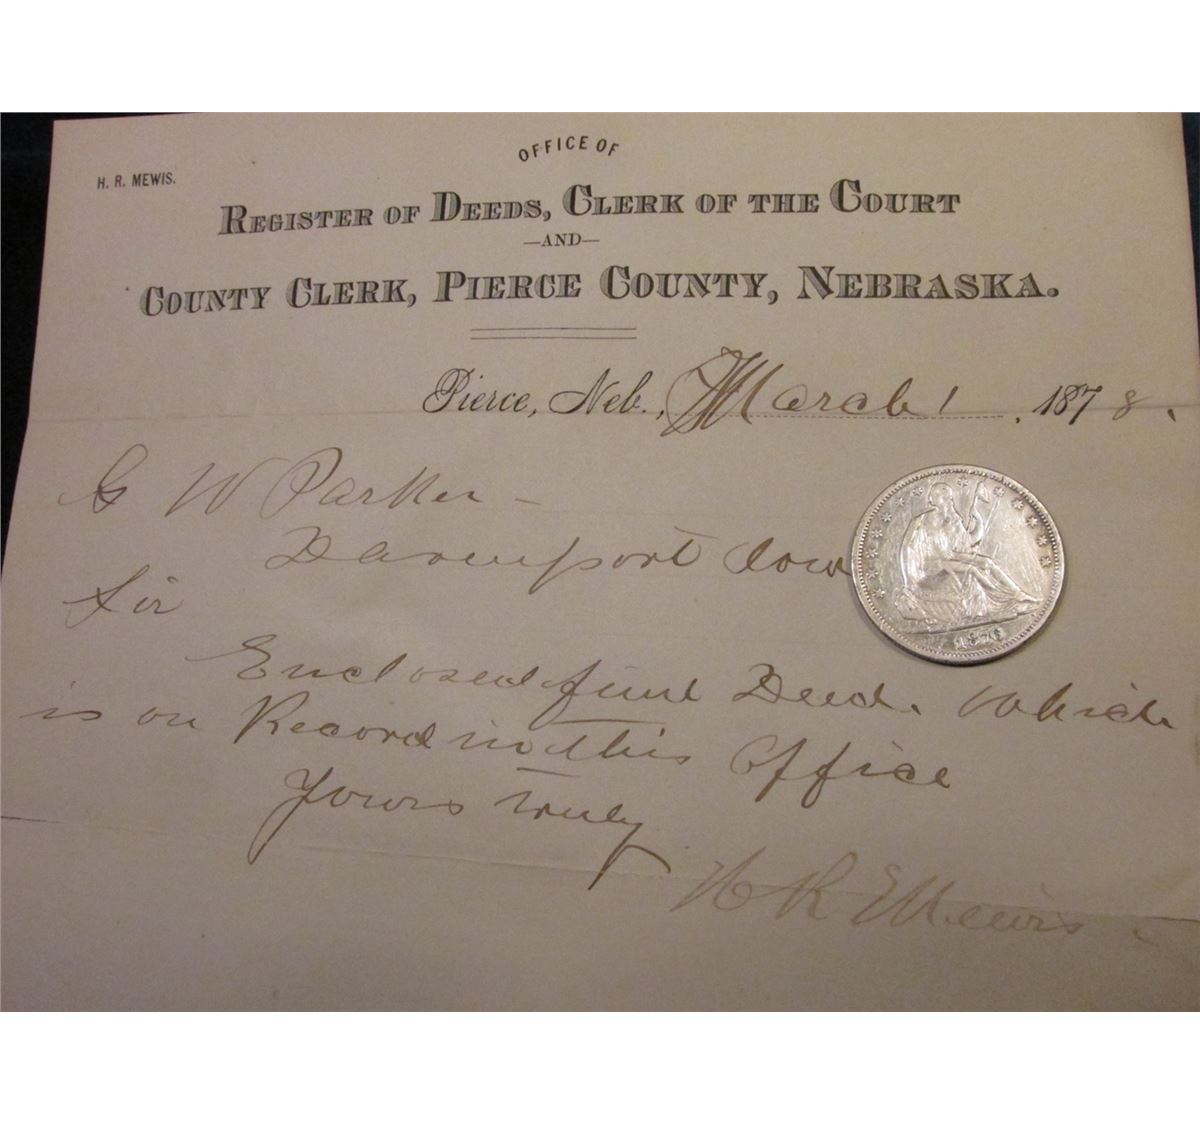 OFFICE OF
H. R. MEWIS.
REGISTER OF DEEDS, CLERK OF THE COURT
—AND—
COUNTY CLERK, PIERCE COUNTY, NEBRASKA.
Pierce, Neb., March 1, 1878.
G W Parker -
Davenport Iowa
Sir
Enclosed find Deed. Which
is on Record in this Office
Yours truly
H R Mewis
1876